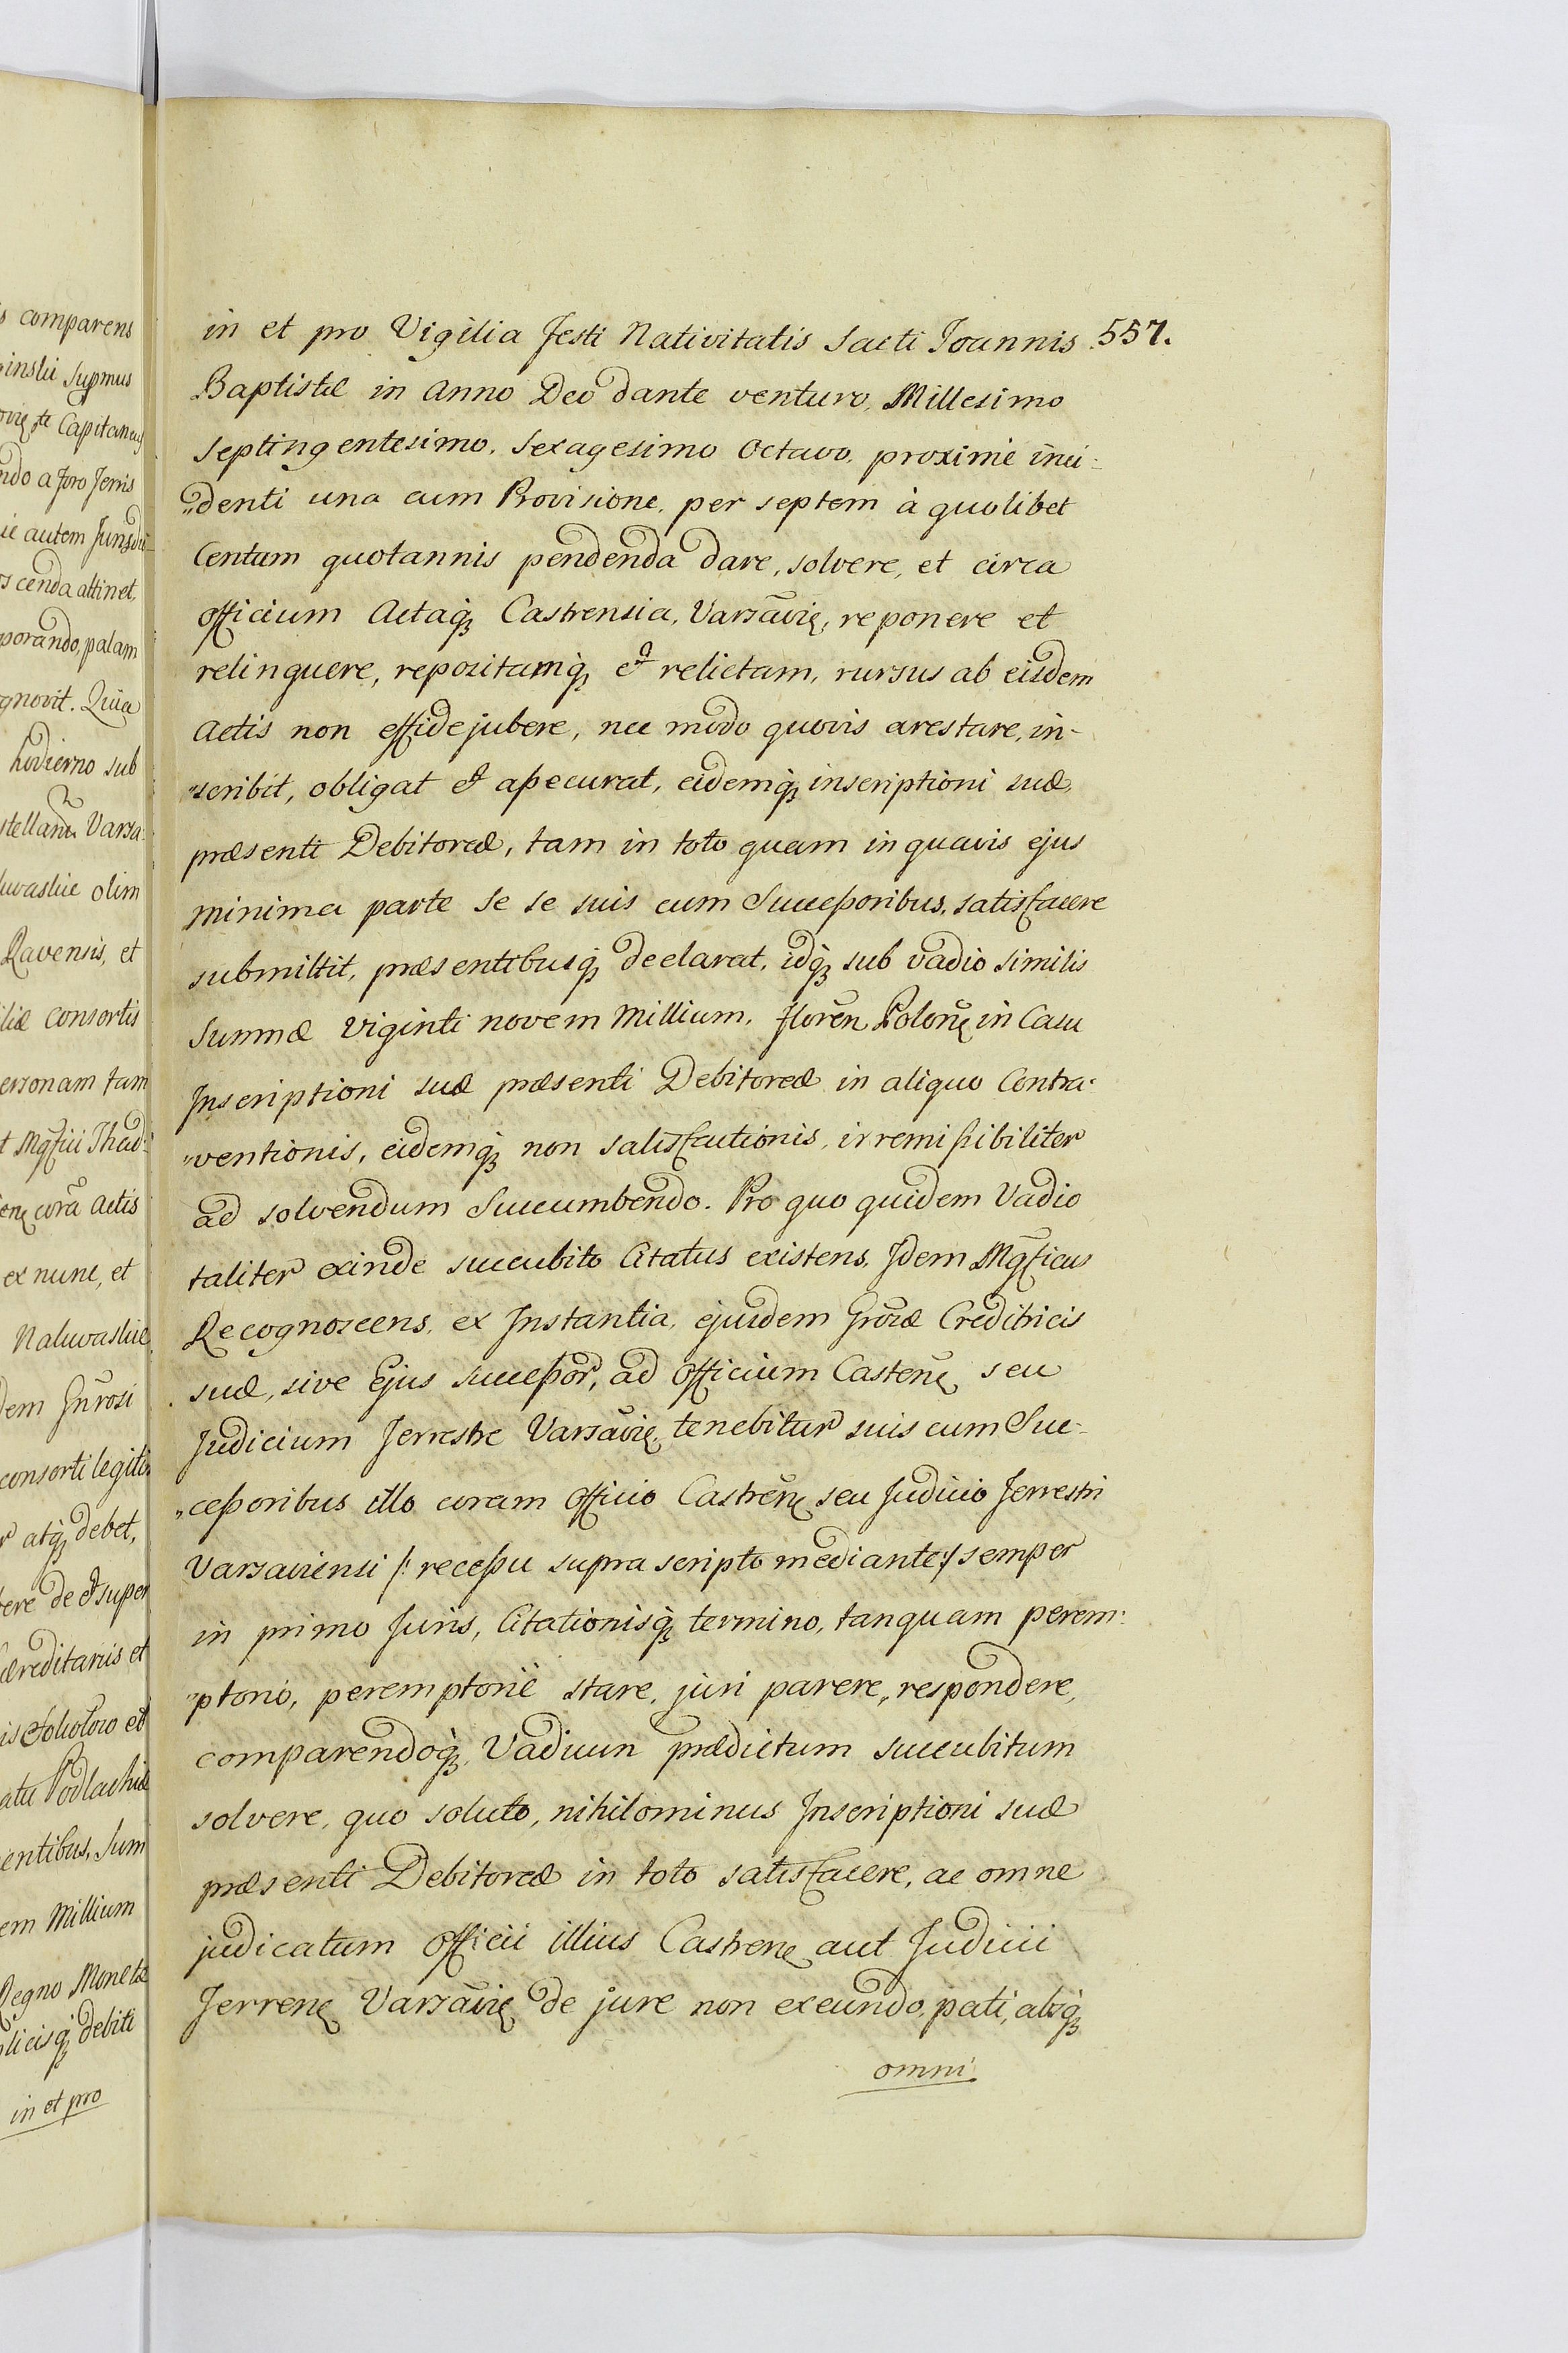 s comparens
inskii Supmus
Capitaneus
ndo a foro Terris
ie autem Jurisdi-
s cenda attinet,
porando, palam
gnovit. Quia
hodierno sub
stellani Varsa:
lwaskie olim
Ravensis, et
liæ consortis
ersonam tam
t Mgfici Thad:
corã actis
ex nunc, et
Nalwaskie
dem Gnrosi
consorti legiti
r atq; debet,
ere de et super
æreditariis et
is et
atu Podlachiæ
entibus, Sum
em Millium
Regno Monetæ
licisq; debiti
in et pro
in et pro Vigilia festi Nativitatis Sacti Joannis 557.
Baptistæ in Anno Deo dante venturo, Millesimo
Septingentesimo, Sexagesimo Octavo, proximè inci-
„denti una cum Provisione, per septem à quolibet
Centum quotannis pendenda dare, solvere, et circa
officium Actaq; Castrensia, Varsãvię, reponere et
relinquere, repositamq; et relictam, rursus ab eisdem
Actis non effidejubere, nec modo quovis arestare, in-
„scribit, obligat et aßecurat, eidemq; inscriptioni suæ,
præsenti Debitoreæ, tam in toto quam in quavis ejus
minima parte se se suis cum Succeßoribus, satisfacere
submittit, præsentibusq; declarat, idq; sub vadio similis
Summæ viginti novem Millium, floreñ Poloñę in Casu
Inscriptioni suæ præsenti Debitoreæ in aliquo Contra-
„ventionis, eidemq; non satisfactionis, irremißibiliter
ad solvendum Succumbendo. Pro quo quidem Vadio
taliter exinde succubito Citatus existens, Idem Mgficus
Recognoscens, ex Instantia, ejusdem Grõsæ Creditricis
suæ, sive Ejus succeßor, ad Officium Casteñę seu
Judicium Terrestre Varsãvię, tenebitur suis cum Suc-
„ceßoribus illo coram Officio Castreñę seu Judicio Terrestri
Varsaviensi /: receßu supra scripto mediante :/ semper
in primo Juris, Citationisq; termino, tanquam perem:
„ptorio, peremptoriè stare, juri parere, respondere,
comparendoq; Vadium prædictum succubitum
solvere, quo soluto, nihilominus Inscriptioni suæ
præsenti Debitoreæ in toto satisfacere, ac omne
judicatum Officii illius Castrenę aut Judicii
Terrenę Varsãvię de jure non exeundo, pati, absq;
omni